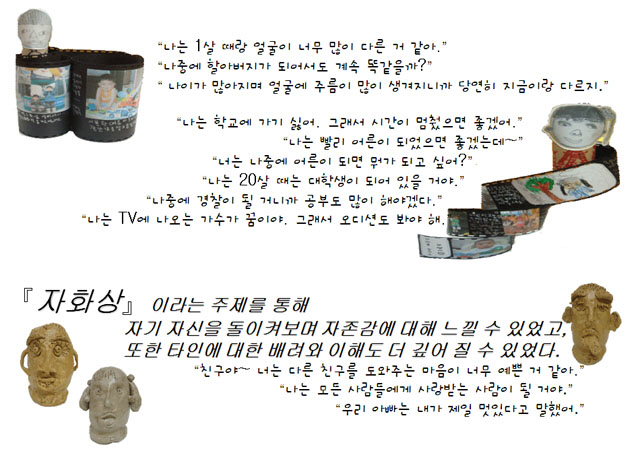 “나는 1살 때랑 얼굴이 너무 많이 다른 거 같아.”
“나중에 할아버지가 되어서도 계속 똑같을까?”
“ 나이가 많아지며 얼굴에 주름이 많이 생겨지니까 당연히 지금이랑 다르지.”
“나는 학교에 가기 싫어. 그래서 시간이 멈췄으면 좋겠어.”
“나는 빨리 어른이 되었으면 좋겠는데~”
“너는 나중에 어른이 되면 뭐가 되고 싶어?”
“나는 20살 때는 대학생이 되어 있을 거야.”
“나중에 경찰이 될 거니까 공부도 많이 해야겠다.”
“나는 TV에 나오는 가수가 꿈이야. 그래서 오디션도 봐야 해.
『 자화상』 이라는 주제를 통해
자기 자신을 돌이켜보며 자존감에 대해 느낄 수 있었고,
또한 타인에 대한 배려와 이해도 더 깊어 질 수 있었다.
“친구야~ 너는 다른 친구를 도와주는 마음이 너무 예쁜 거 같아.”
“나는 모든 사람들에게 사랑받는 사람이 될 거야.”
“우리 아빠는 내가 제일 멋있다고 말했어.”